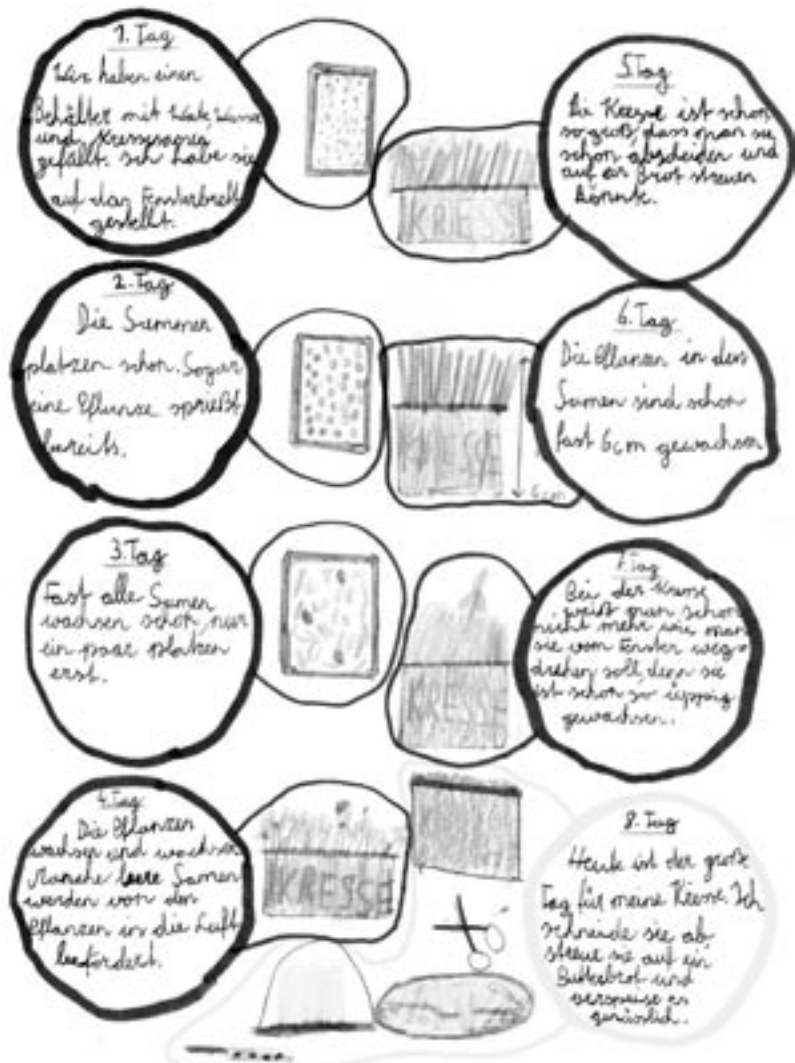 1. Tag
Wir haben einen
Behälter mit Watte, Wasser
und Kressesamen
gefüllt. Ich habe sie
auf das Fensterbrett
gestellt.
2. Tag
Die Sammen
platzen schon. Sogar
eine Pflanze sprießt
bereits.
3. Tag
Fast alle Samen
wachsen schon, nur
ein paar platzen
erst.
4. Tag
Die Pflanzen
wachsen und wachsen.
Manche leere Samen
werden von den
Pflanzen in die Luft
befördert.
KRESSE
5. Tag
Die Kresse ist schon
so groß, dass man sie
schon abscheiden und
auf ein Brot streuen
könnte.
KRESSE
6. Tag
Die Pflanzen in den
Samen sind schon
fast 6cm gewachsen
KRESSE
6cm
7. Tag
Bei der Kresse
weiß man schon
nicht mehr wie man
sie vom Fenster weg-
drehen soll, denn sie
ist schon so üppig
gewachsen.
KRESSE
8. Tag
Heute ist der große
Tag für meine Kresse. Ich
schneide sie ab,
streue sie auf ein
Butterbrot und
verspeise es
genüsslich.
KRESSE